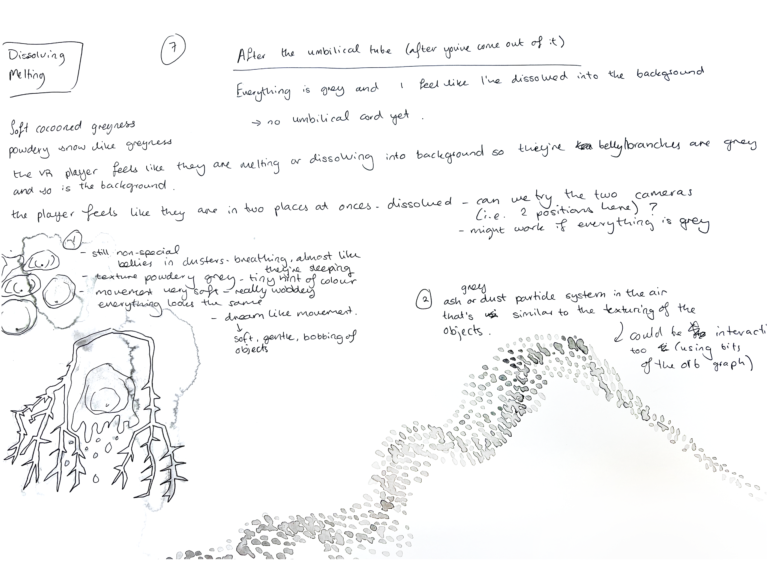 Dissolving
Melting
7
After the umbilical tube (after you've come out of it)
Everything is grey and I feel like I've dissolved into the background
→ no umbilical cord yet.
Soft cocooned greyness
powdery snow like greyness
the VR player feels like they are melting or dissolving into background so they're belly/branches are grey
and so is the background.
the player feels like they are in two places at onces - dissolved - can we try the two cameras
(i.e. 2 positions here) ?
- might work if everything is grey
1
- still non-special
bellies in clusters - breathing, almost like
they're sleeping
- texture powdery grey - tiny hint of colour
- movement very soft - really wobbly
everything looks the same
- dream like movement.
↓
soft, gentle, bobbing of
objects
2
grey
ash or dust particle system in the air
that's similar to the texturing of the
objects.
could be interacti
too (using bits
of the orb graph)